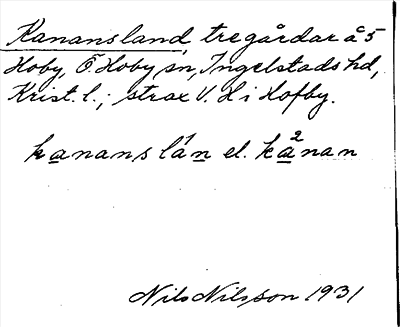 Kanansland, tre gårdar å 5
Hoby, Ö Hoby sn, Ingelstads hd,
Krist. l.; strax V. H i Hofby.
kanans lán el. kånan
Nils Nilsson 1931